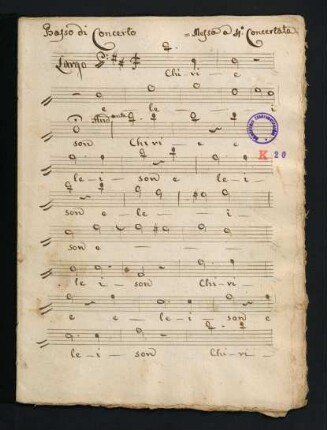 Basso di Concerto = Messa a 4.° Concertata
Largo
Chi-ri-e
e le - i
son Chi ri e e
K 20
le-i-son e le-i
son e-le-i-
son e
le i-son Chi-ri-
e e-le-i-son e
le-i-son Chi-ri-